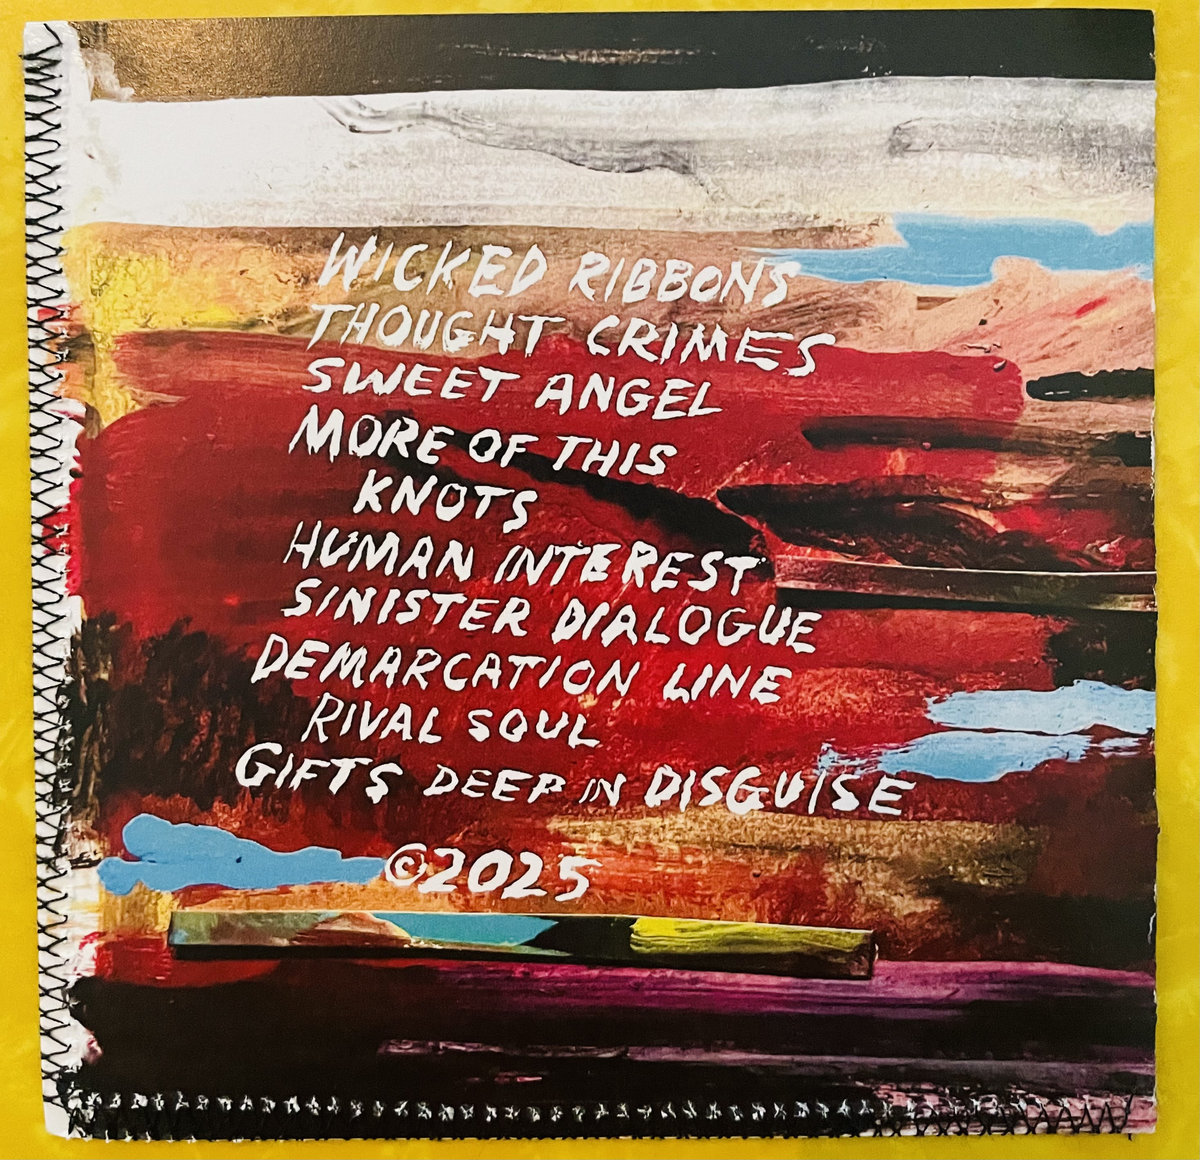 WICKED RIBBONS
THOUGHT CRIMES
SWEET ANGEL
MORE OF THIS
KNOTS
HUMAN INTEREST
SINISTER DIALOGUE
DEMARCATION LINE
RIVAL SOUL
GIFTS DEEP IN DISGUISE
©2025